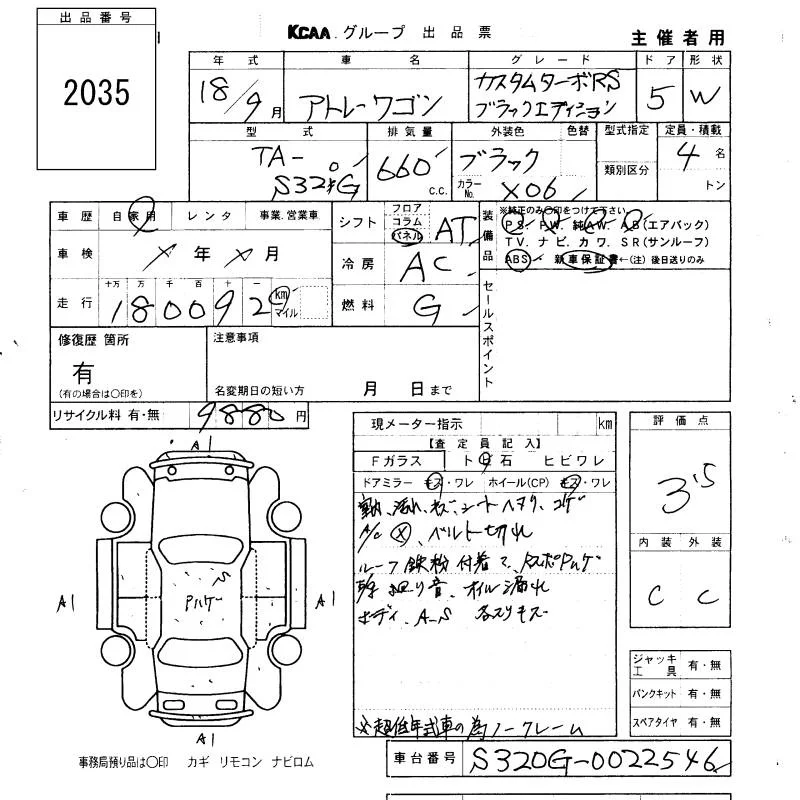 出品番号
2035
KCAA グループ 出品票
主催者用
年式 車名 グレード ドア 形状
18/9月 アトレーワゴン カスタムターボRS ブラックエディション 5 W
型式 排気量 外装色 色替 型式指定 定員・積載
類別区分
TA-S320G 660 c.c. ブラック カラーNo. X06 4名
トン
車歴 自家用 レンタ 事業.営業車
車検 年 月
走行 十万 万 千 百 十 一
180092 km マイル
シフト フロア コラム パネル AT
冷房 AC
燃料 G
装備品 ※純正のみ○印をつけて下さい。
PS. PW. 純AW. AB(エアバック)
TV. ナビ. カワ. SR(サンルーフ)
ABS 新車保証書←(注)後日送りのみ
セールスポイント
修復歴 箇所
有
(有の場合は○印を)
注意事項
名変期日の短い方 月 日まで
リサイクル料 有・無 9880円
現メーター指示 km
【査定員記入】
Fガラス ト 石 ヒビワレ
ドアミラー キズ・ワレ ホイール(CP) キズ・ワレ
シートヘタリ、コゲ
A/C ベルト切れ
ルーフ 鉄粉付着
オイル漏れ
ボディ、A-S
※超低年式車の為ノークレーム
評価点
3.5
内装 外装
C C
ジャッキ工具 有・無
パンクキット 有・無
スペアタイヤ 有・無
A1
A1
Pハゲ
S
A1
A1
事務局預り品は○印 カギ リモコン ナビロム
車台番号 S320G-0022546